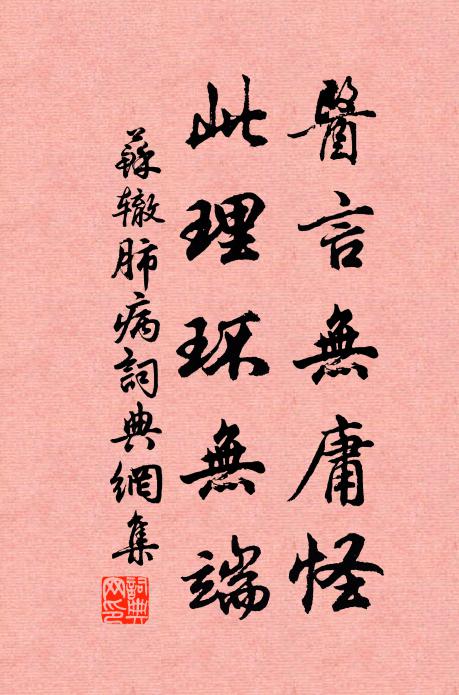 醫言無庸怪
此理环無端
蘇辙肺病詞典網集
詞典網印